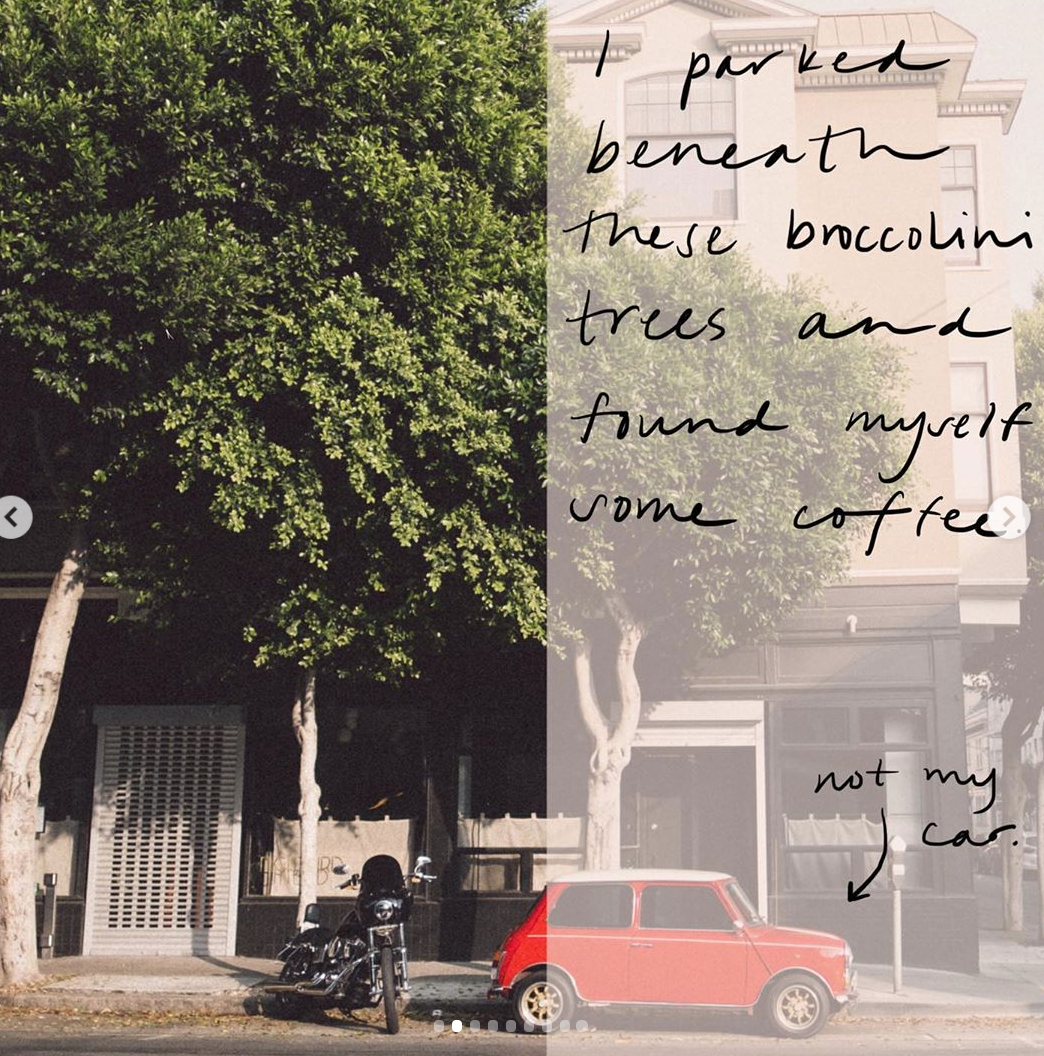 I parked
beneath
these broccolini
trees and
found myself
some coffee.
not my
car.